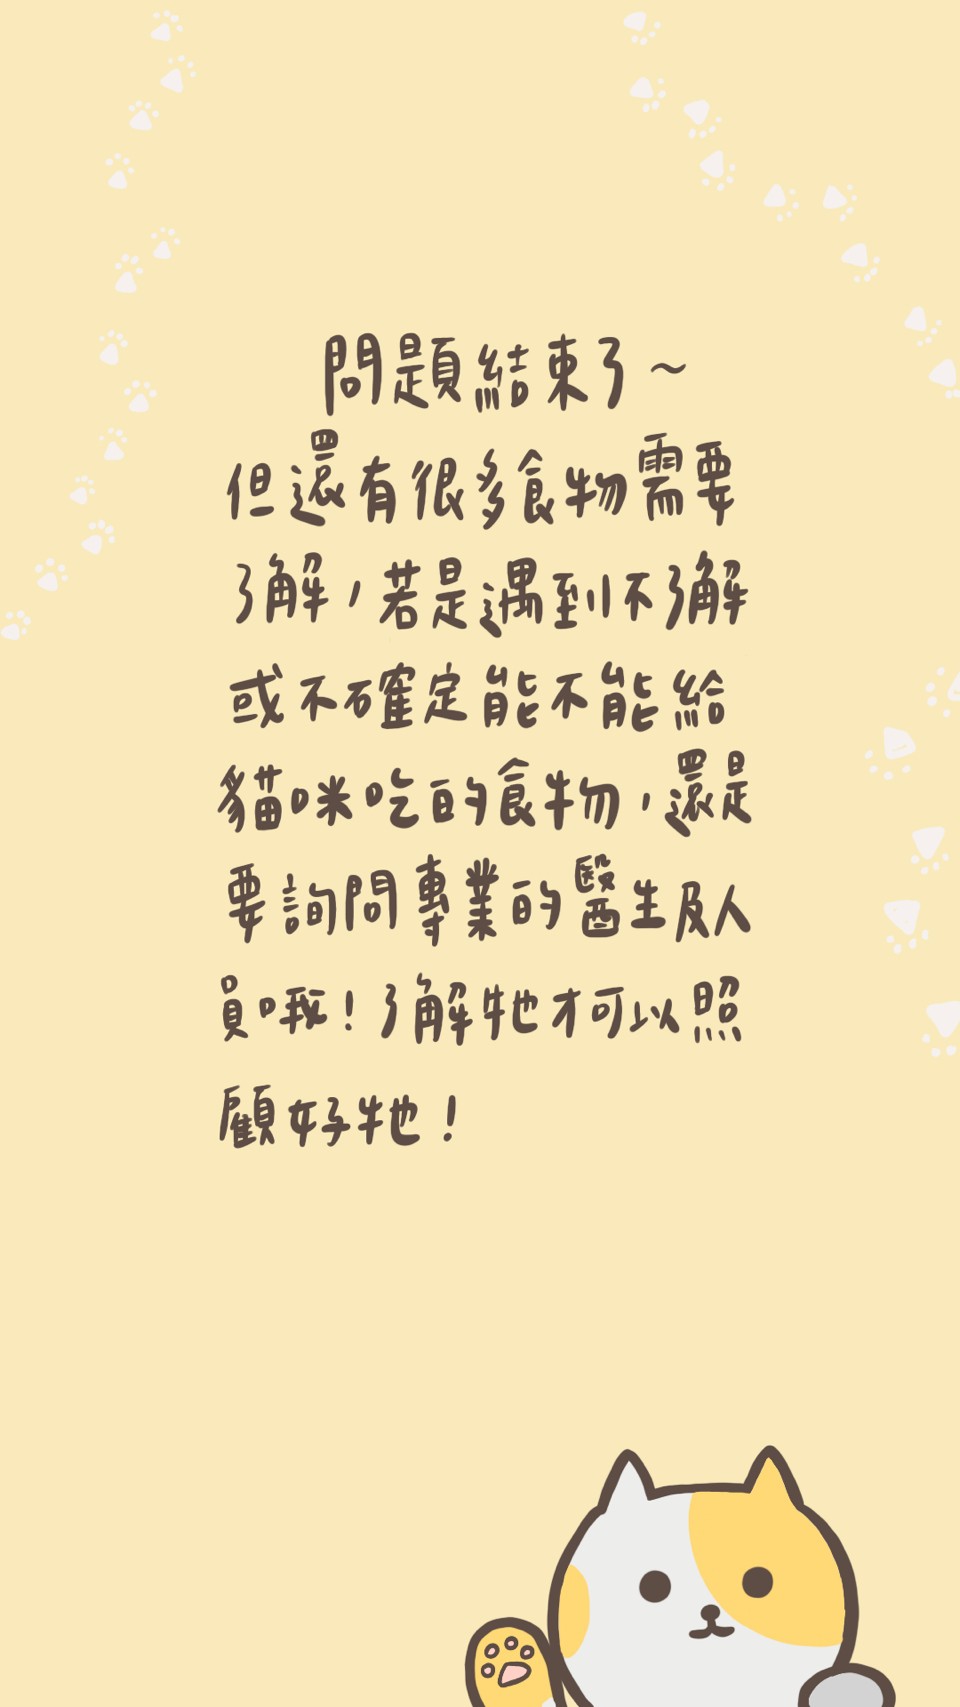 問題結束了~
但還有很多食物需要
了解,若是遇到不了解
或不確定能不能給
貓咪吃的食物,還是
要詢問專業的醫生及人
員哦!了解牠才可以照
顧好牠!